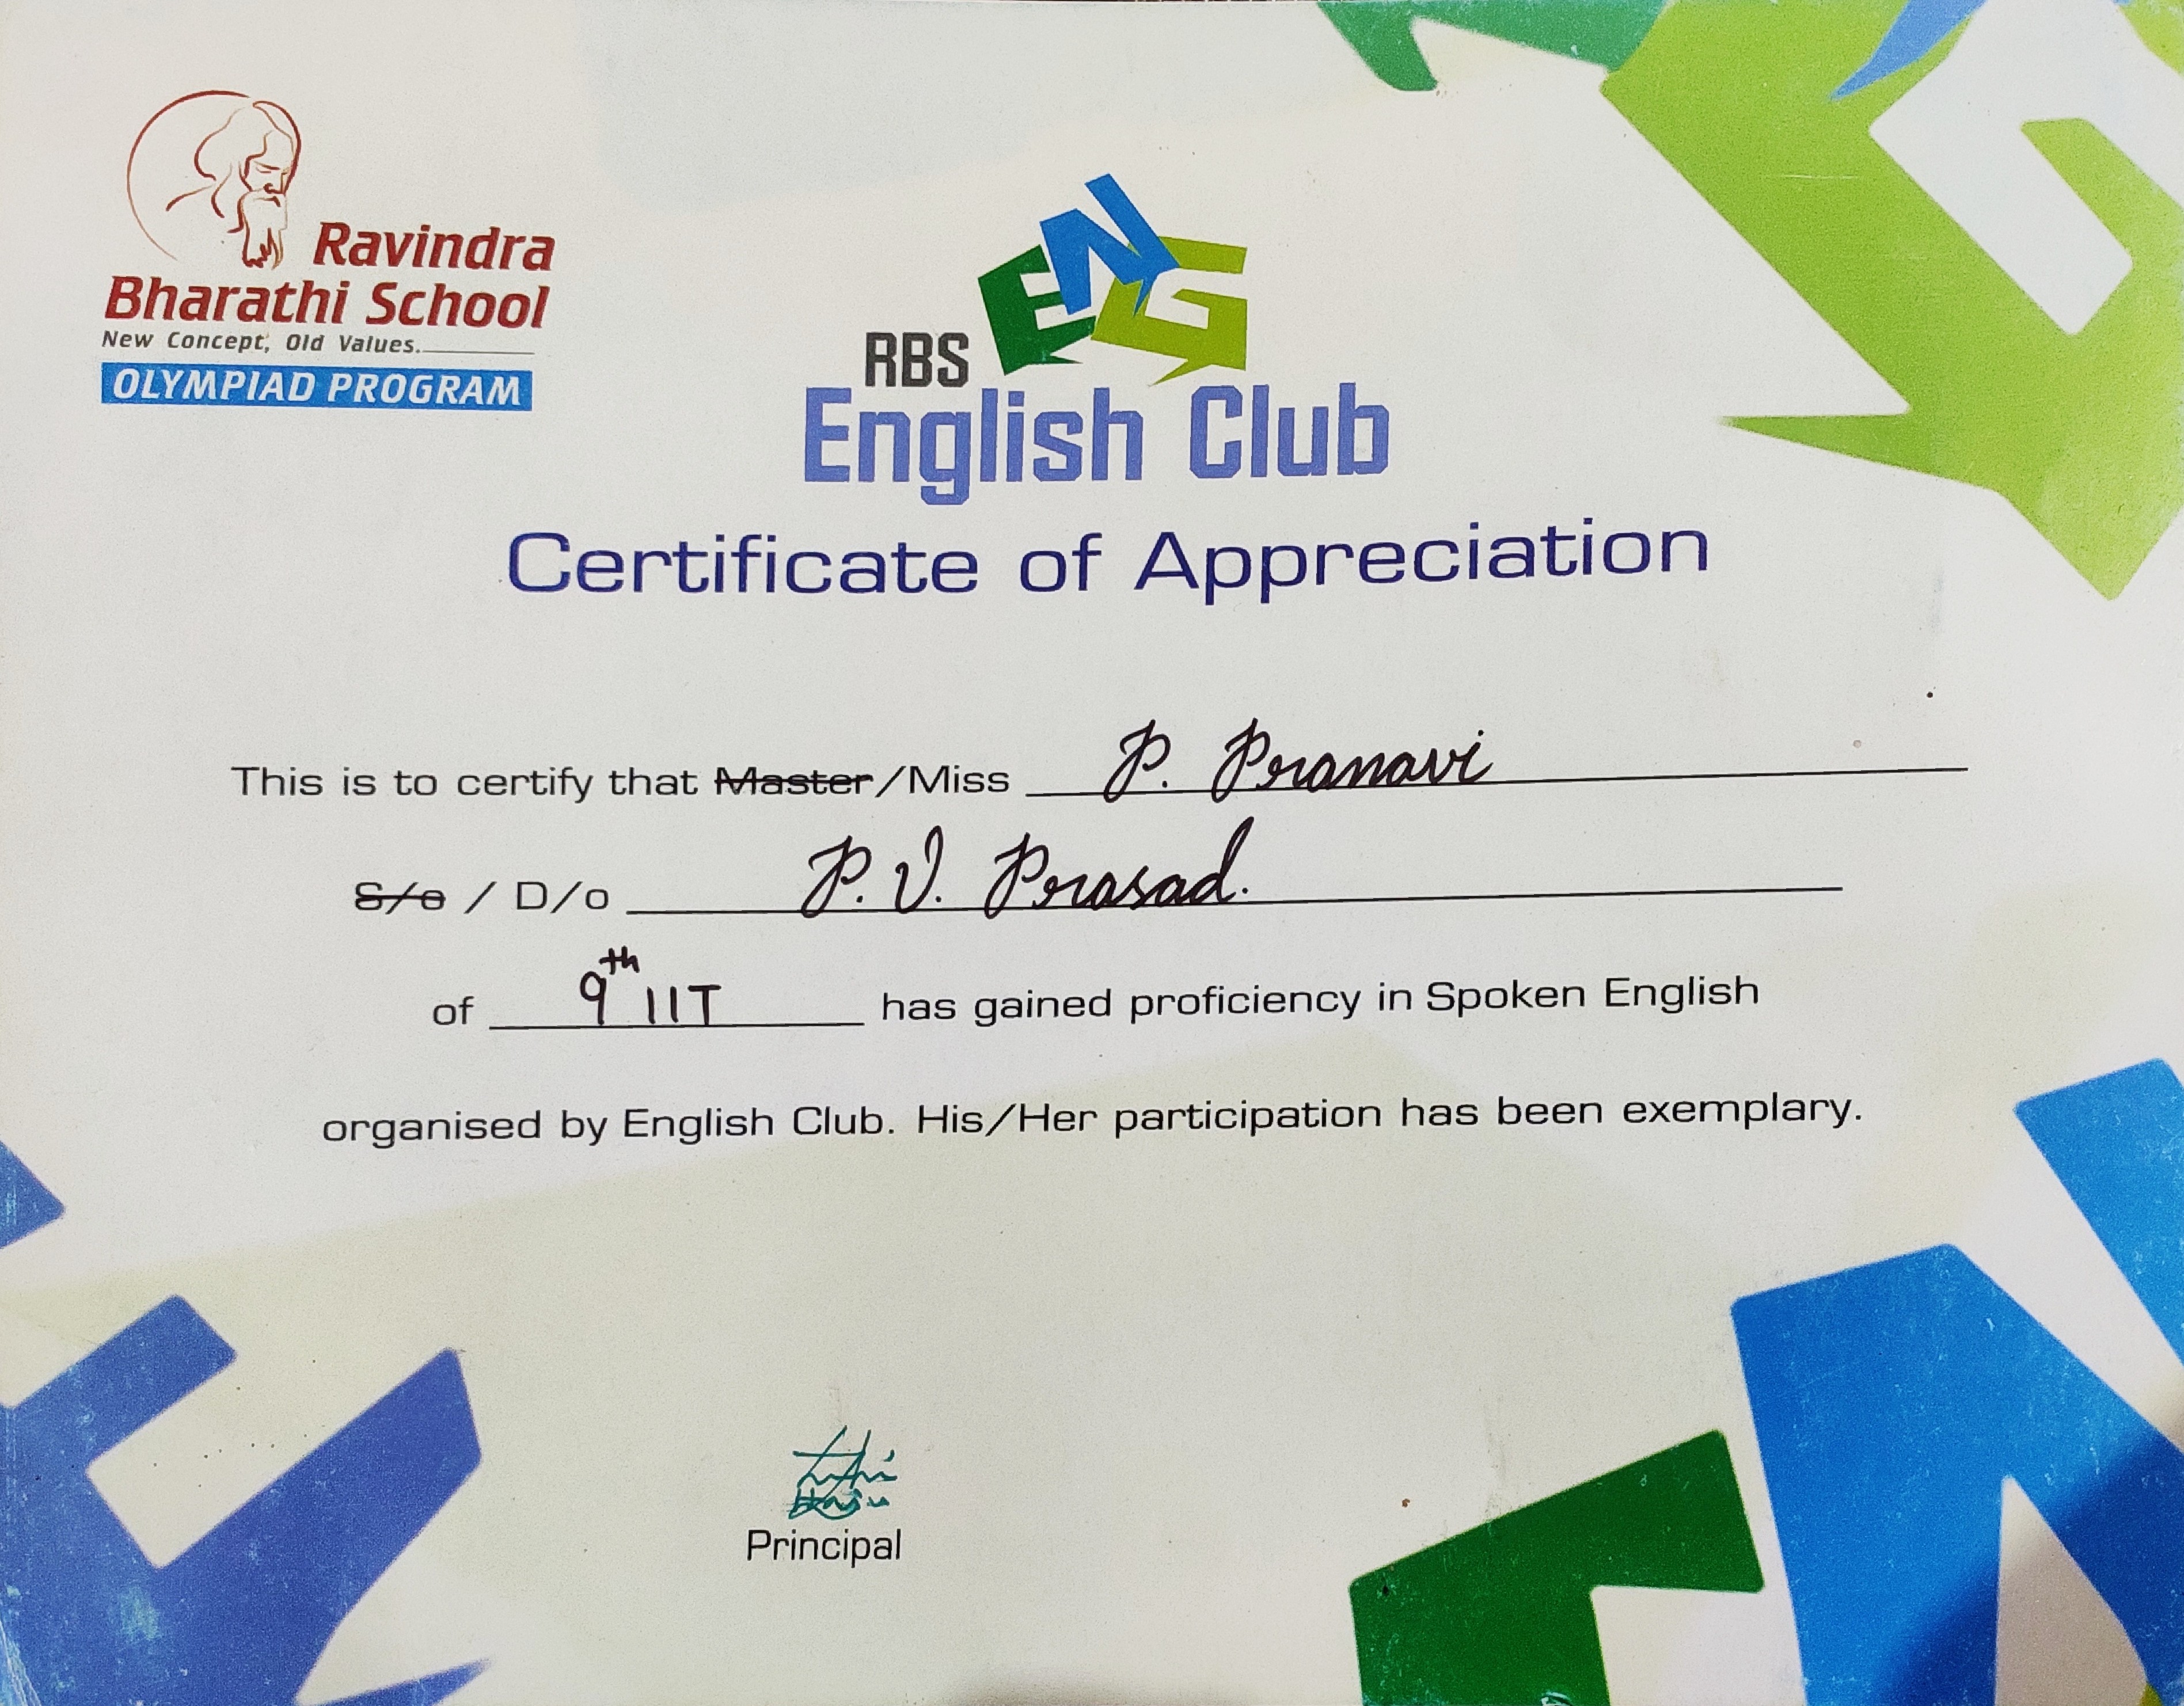 Ravindra
Bharathi School
New Concept, Old Values.
OLYMPIAD PROGRAM
ENG
RBS
English Club
Certificate of Appreciation
This is to certify that Master/Miss P. Pranavi
S/o / D/o P. V. Prasad.
of 9th IIT has gained proficiency in Spoken English
organised by English Club. His/Her participation has been exemplary.
Principal